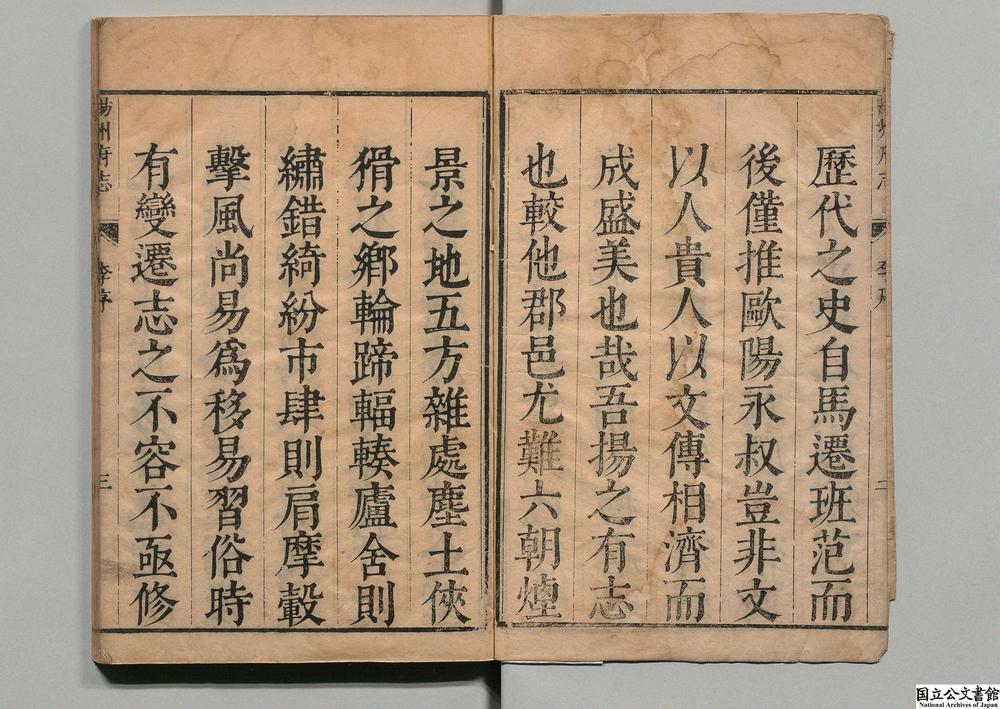 歷代之史自馬遷班范而
後僅推歐陽永叔豈非文
以人貴人以文傳相濟而
成盛美也哉吾揚之有志
也較他郡邑尤難六朝煙
景之地五方雜處塵土俠
猾之鄉輪蹄輻輳廬舍則
繡錯綺紛市肆則肩摩轂
擊風尚易爲移易習俗時
有變遷志之不容不亟修
揚州府志
李序
三
国立公文書館
National Archives of Japan